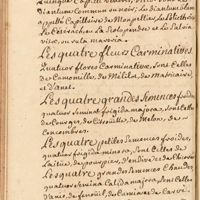 appellé Capillaire de Monpellier, Les
La Scolopendre et La Salvia
vita, ou ruta muraria.
Les quatre fleurs Carminatives.
Quatuor flores Carminativæ, sont Celles
de Camomille, de Melilot, de Matricaire,
et d'anet.
Les quatre grandes Semences froides,
quatuor Semina frigida majora, sont Celles
de Courges, de Citrouille, de Melon, de
Concombres.
Les quatre petites Semences froides,
quatuor frigida minora, sont Celles de
Laitue, de pourpier, d'endive et de Chicorée
Les quatre grandes Semences Chaudes,
quatuor Semina Calida majora, sont Celles
d'anis, de fenouil, de Cumin et de Carvi.